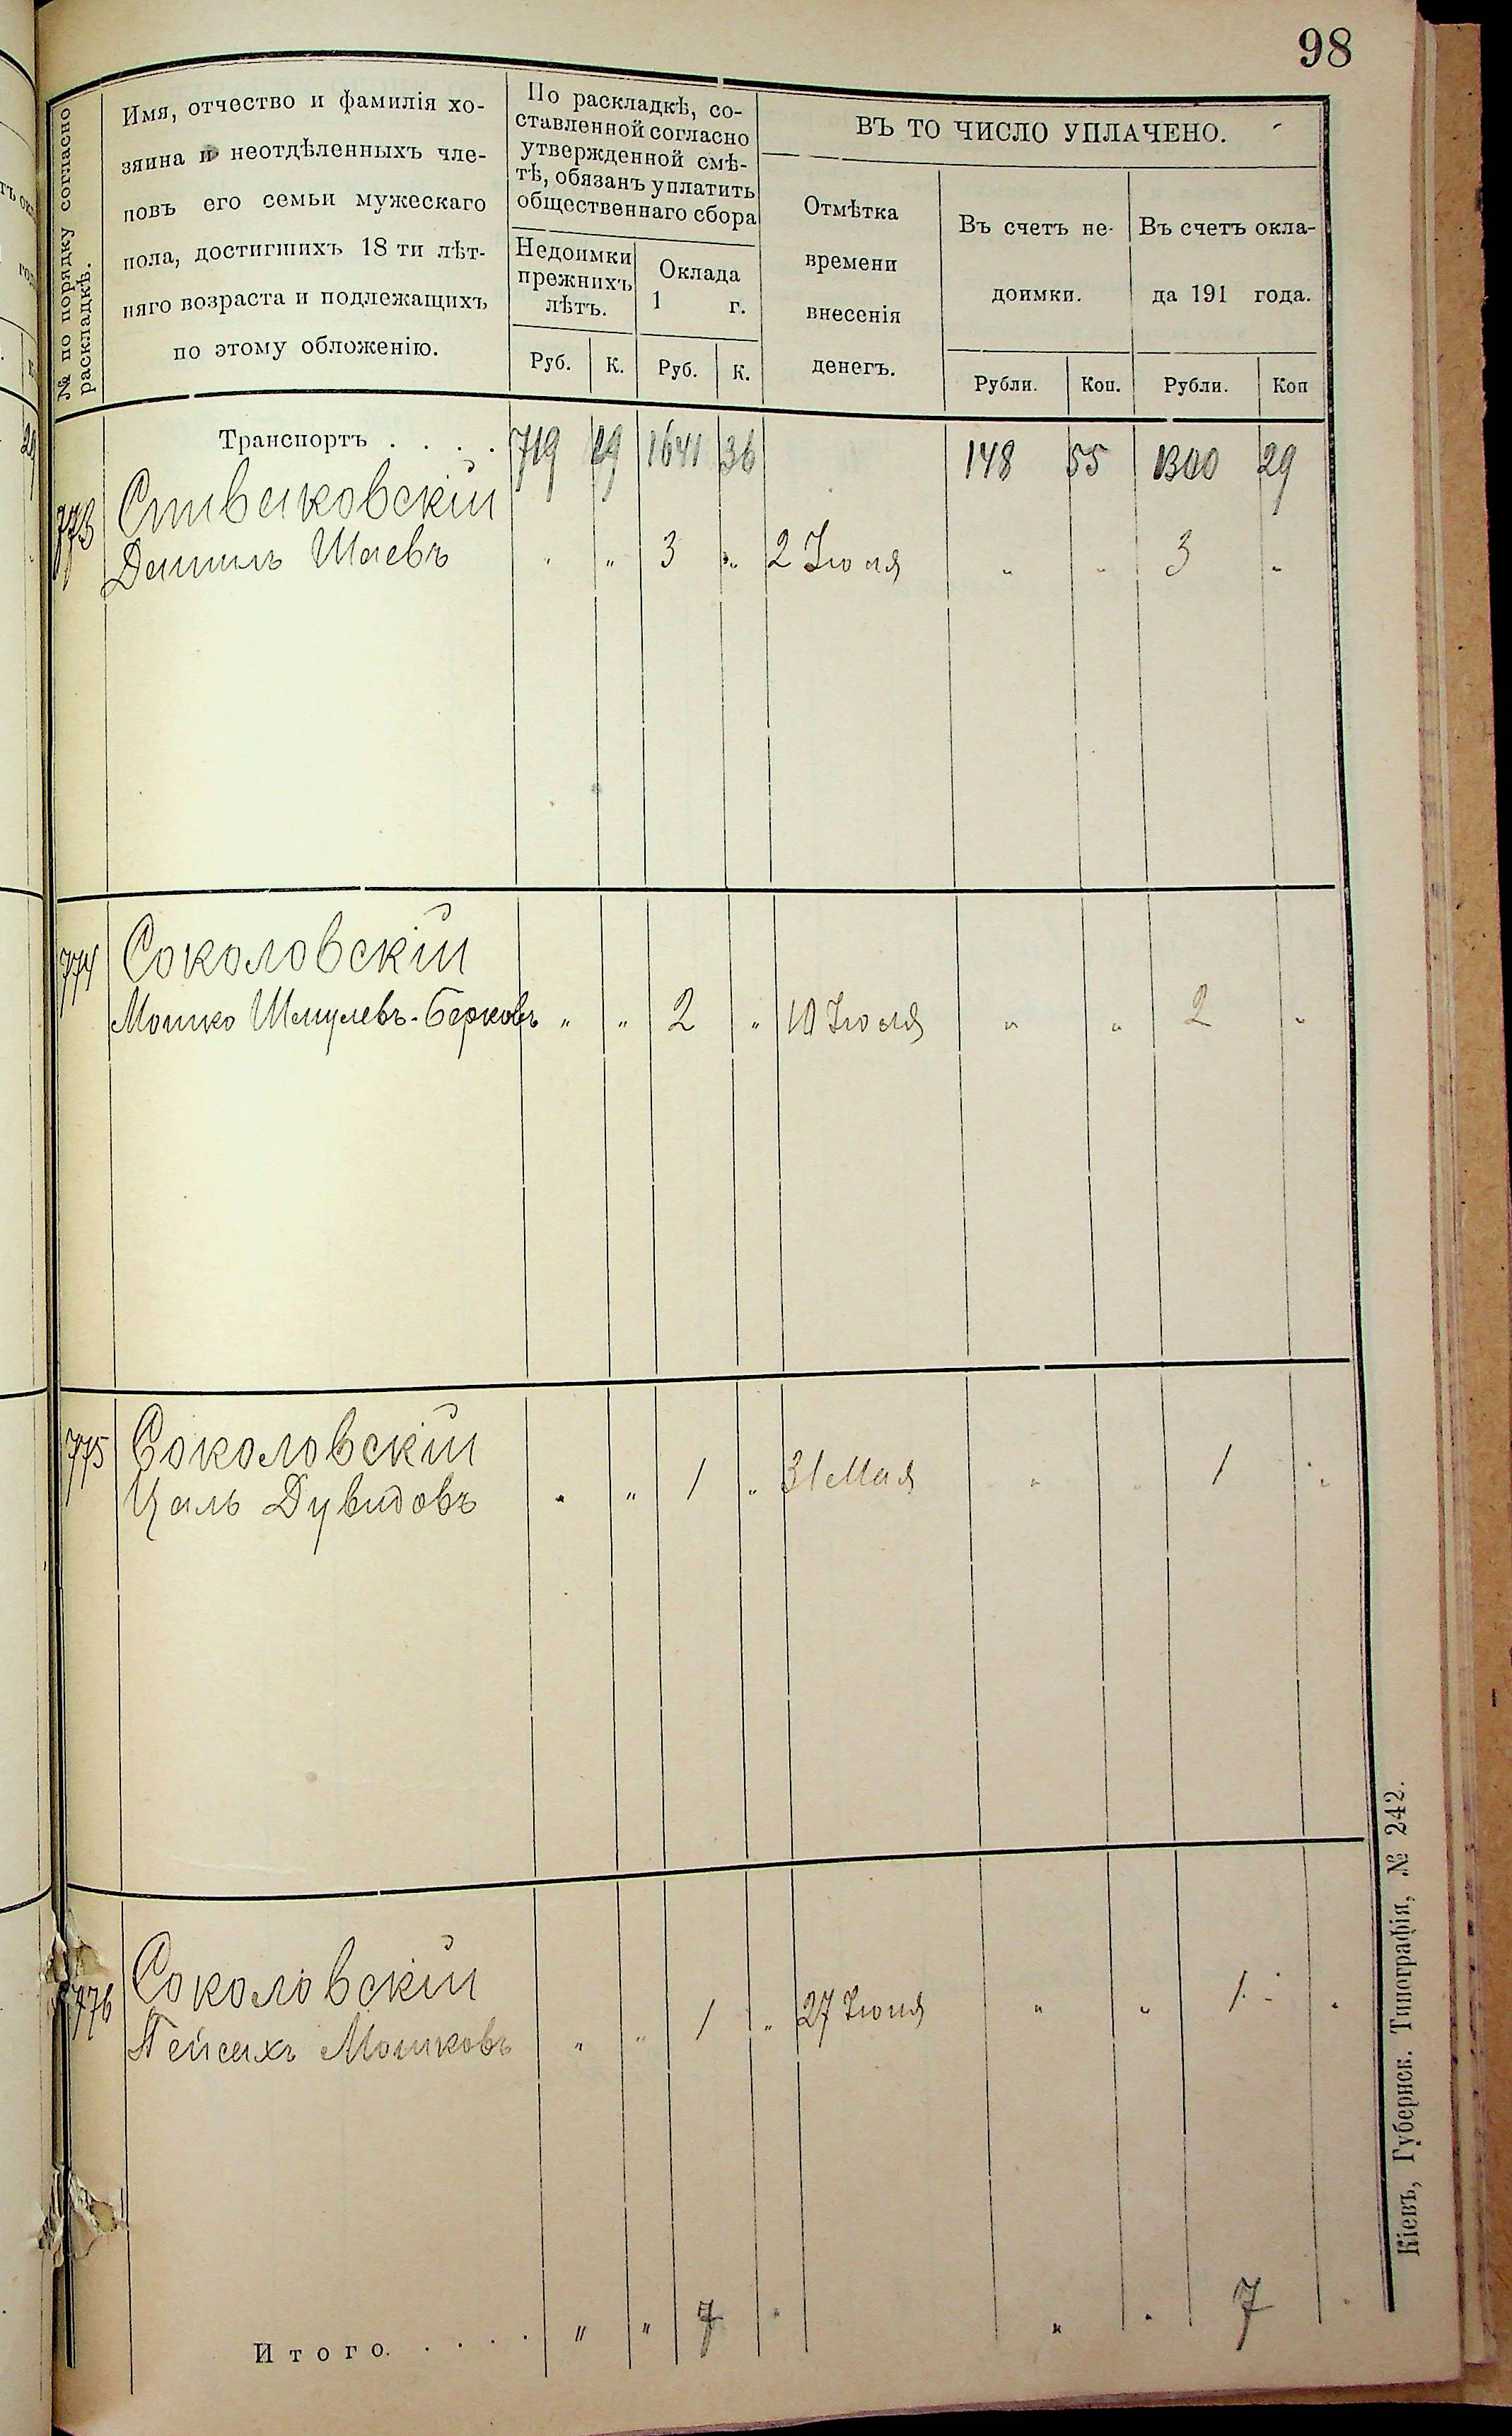 98
№ по порядку согласно
раскладкѣ.
Имя, отчество и фамилія хо-
зяина и неотдѣленныхъ чле-
новъ его семьи мужескаго
пола, достигшихъ 18 ти лѣт-
няго возраста и подлежащихъ
по этому обложенію.
По раскладкѣ, со-
ставленной согласно
утвержденной смѣ-
тѣ, обязанъ уплатить
общественнаго сбора
Недоимки
прежнихъ
лѣтъ.
Оклада
1 г.
Руб. К. Руб. К.
ВЪ ТО ЧИСЛО УПЛАЧЕНО.
Отмѣтка
времени
внесенія
денегъ.
Въ счетъ не-
доимки.
Въ счетъ окла-
да 191 года.
Рубли. Коп. Рубли. Коп
Транспортъ . . . . 719 19 1641 36 148 55 1300 29
773
Данилъ Шаевъ " " 3 " 2 Іюля " " 3 "
774 Соколовскій
Мошко Шмулевъ-Берковъ " " 2 " 10 Іюля " " 2 "
775 Соколовскій
Цаль Дувидовъ " " 1 " 31 Мая " " 1 "
776 Соколовскій
Пейсахъ Мошковъ " " 1 " 27 " " 1 "
Итого. . . . . " " 7 " " " 7 "
Кіевъ, Губернск. Типографія, № 242.